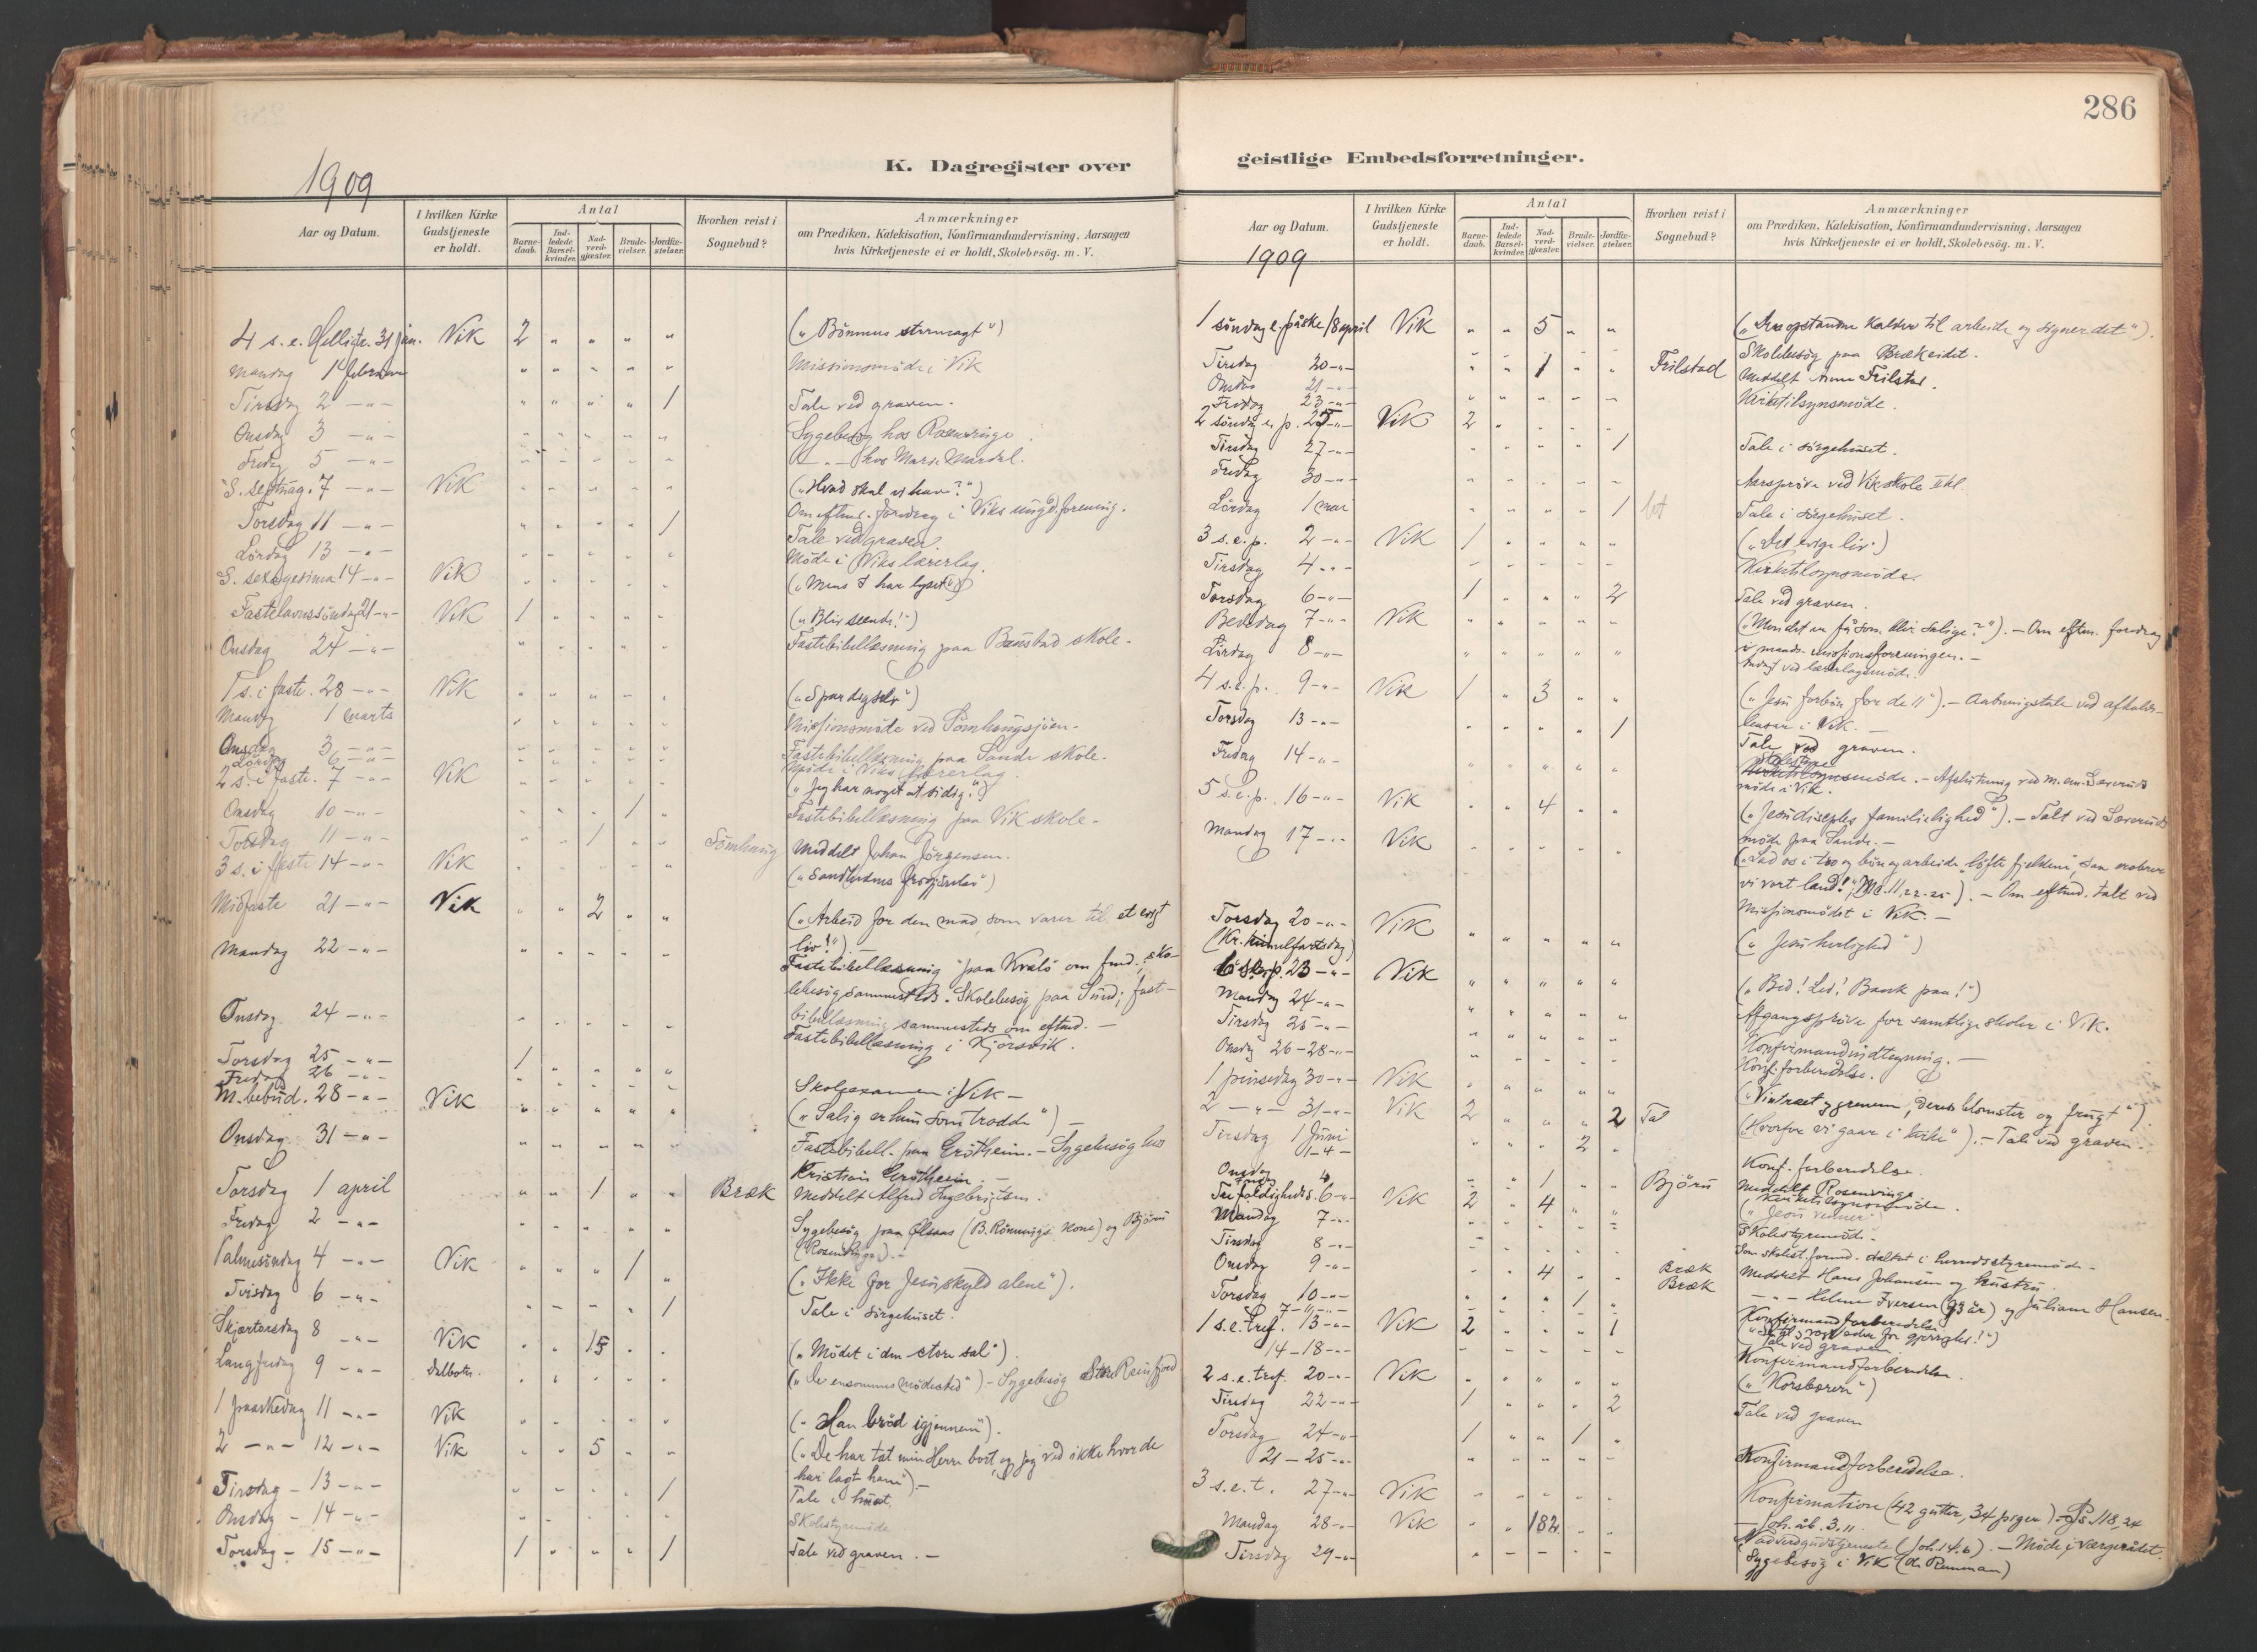 286
K. Dagregister over
geistlige Embedsforretninger.
1909
Aar og Datum.
I hvilken Kirke Gudstjeneste er holdt.
Antal
Barne-daab.
Ind-ledede Barsel-kvinder.
Nad-verd-gjæster.
Brude-vielser.
Jordfæ-stelser.
Hvorhen reist i Sognebud?
Anmærkninger
om Prædiken, Katekisation, Konfirmandundervisning, Aarsagen
hvis Kirketjeneste ei er holdt, Skolebesög. m. V.
4 s. e. Helligtr. 31 jan. Vik 2 " " " " („Bönnens stormagt“)
Mandag 1 februar " " " " " Missionsmöde i Vik
Tirsdag 2 —"— " " " " 1 Tale ved graven.
Onsdag 3 —"— " " " " " Sygebesög hos Rosenvinge.
Fredag 5 —"— " " " " " —"— hos
S. septuag. 7 —"— Vik " " " " " („Hvad skal vi have?“)
Torsdag 11 —"— " " " " 1 Om eftmd. foredrag i Viks ungd.forening.
Tale ved graven.
Lördag 13 —"— " " " " " Möde i Viks lærerlag.
S. sexagesima 14 —"— Vik " " " " " („Mens I har lyset“)
Fastelavnssöndag 21 —"— Vik 1 " " " " („Bliv seende!“)
Onsdag 24 —"— " " " " " Fastebibellæsning paa skole.
1 s. i faste. 28 —"— Vik " " " " " („Spar dig selv“)
Mandag 1 marts " " " " " Missionsmöde ved Sömhaugsjöen.
Onsdag 3 —"— " " " " " Fastebibellæsning paa Sande skole.
Lördag 6 —"— " " " " " Möde i Viks lærerlag.
2 s. i faste. 7 —"— Vik " " " " " („Jeg har noget at si dig.“)
Onsdag 10 —"— " " " 1 " Fastebibellæsning paa Vik skole.
Torsdag 11 —"— " " 1 " " Sömhaug Meddelt Johan Jörgensen.
3 s. i faste 14 —"— Vik " " " " " („Sandhedens “)
Midfaste 21 —"— Vik " " 2 " " („Arbeid for den mad som varer til et evigt
liv!“).—
Mandag 22 —"— " " " " " Fastebibellæsning paa Kvalö om fmd.; sko-
lebesög sammesteds. Skolebesög paa Sund; fast-
bibellæsning sammesteds om eftmd.—
Onsdag 24 —"— " " " " " Fastebibellæsning i Kjörsvik.
Torsdag 25 —"— 1 " " " "
Fredag 26 —"— " " " " " Skoleexamen i Vik—
M. bebud. 28 —"— Vik " " " " " („Salig er hun som trodde“)—
Onsdag 31 —"— " " " " " Fastebibell. paa Grötheim.— Sygebesög hos
Kristian Grötheim.—
Torsdag 1 april " " 1 " " Bræk Meddelt Alfred Ingebrigtsen.
Fredag 2 —"— " " " " " Sygebesög paa (B. Rönnings kone) og Björu
(Rosenvinge).—
Palmesöndag 4 —"— Vik " " " 1 " („Ikke for Jesu skyld alene“).
Tirsdag 6 —"— " " " " 1 Tale i sörgehuset.
Skjærtorsdag 8 —"— Vik " " 15 " " („Mödet i den store sal“)
Langfredag 9 —"— Dalbotn. " " " " " („De ensommes mödested“)— Sygebesög Store Reinfjord
1 paaskedag 11 —"— Vik " " " " " („Han bröd igjennem“).
2 —"— 12 —"— Vik " " 5 " " („De har tat min Herre bort, og jeg ved ikke hvor de
har lagt ham“).—
Tirsdag — 13 —"— " " " " 1 Tale i huset.
Onsdag — 14 —"— " " " " " Skolestyremöde
Torsdag — 15 —"— 1 " " " 1 Tale ved graven.—
Aar og Datum.
I hvilken Kirke Gudstjeneste er holdt.
Antal
Barne-daab.
Ind-ledede Barsel-kvinder.
Nad-verd-gjæster.
Brude-vielser.
Jordfæ-stelser.
Hvorhen reist i Sognebud?
Anmærkninger
om Prædiken, Katekisation, Konfirmandundervisning, Aarsagen
hvis Kirketjeneste ei er holdt, Skolebesög. m. V.
1909
1 söndag e. påske 18 april Vik " " 5 " " („Den opstandne kalder til arbeide og signer det“).
Tirsdag 20 —"— " " 1 " " Feilstad Skolebesög paa Brækeidet.
Onsdag 21 —"— Meddelt Anne Feilstad.
Fredag 23 —"— " " " " " Kirketilsynsmöde.
2 söndag e. p. 25 —"— Vik 2 " " " "
Tirsdag 27 —"— " " " " 1 Tale i sörgehuset.
Fredag 30 —"— " " " " " Aarspröve ved Vik skole II kl.
Lördag 1 mai " " " " 1 Tale i sörgehuset.
3 s. e. p. 2 —"— Vik 1 " " " " („Det evige liv“)
Tirsdag 4 —"— " " " " " Kirketilsynsmöde.
Torsdag 6 —"— 1 " " " 2 Tale ved graven.
Bededag 7 —"— Vik " " " " " („Mon det er få som blir salige?“).— Om eftm. foredrag
i mands-missionsforeningen.—
Lördag 8 —"— " " " " " ved lærerlagsmöde.
4 s. e. p. 9 —"— Vik 1 " 3 " " („Jesu forbön for de 11“).— Aabningstale ved afholds-
i Vik.—
Torsdag 13 —"— " " " " 1 Tale ved graven.
Fredag 14 —"— " " " " " Skolestyremöde.— Afslutning ved m.em. Sæveruds
möde i Vik.
5 s. e. p. 16 —"— Vik " " 4 " " („Jesu disciples familielighed“).— Talt ved Sæveruds
möde paa Sande.—
Mandag 17 —"— Vik " " " " " („Lad os i tro og bön og arbeide löfte fjeldene, saa erobrer
vi vort land!“; Mc. 11.22-25).— Om eftmd. talt ved
Missionsmödet i Vik.—
Torsdag 20 —"— Vik " " " " " („Jesu herlighed“)
(Kr. himmelfartsdag)
6 s. e. p. 23 —"— Vik " " " " " („Bed! Led! Bank paa!“)
Mandag 24 —"— " " " " " Afgangspröve for samtlige skoler i Vik.
Tirsdag 25 —"— " " " " " Konfirmandindtegning.—
Onsdag 26–28 —"— " " " " " Konf. forberedelse.
1 pinsedag 30 —"— Vik " " " " " („Vintræet og grenene, deres blomster og frugt“)
2 —"— 31 —"— Vik 2 " " " 2 Tal („Hvorfor vi gaar i kirke“).— Tale ved graven.
Tirsdag 1 Juni " " " 2 "
1–4 — Konf. forberedelse.
" " 1 " " Björu Meddelt Rosenvinge
Kirketilsynsmöde.
Trefoldigheds. 6 —"— Vik 2 " 4 " " („Jesu venner“)
Mandag 7 —"— " " " " " Skolestyremöde.
Tirsdag 8 —"— " " " " " Som skolest. formd. deltat i herredsstyremöde.
Onsdag 9 —"— " " 4 " " Bræk Meddelt Hans Johansen og hustru.
Bræk —"— Helene Iversen (93 år) og Juliane Hansen.
Torsdag 10 —"— " " " 1 "
7–11 —"— Konfirmandforberedelse
1 s. e. tref. 13 —"— Vik 2 " " " 1 („ vogt eder for gjerrighet!“)
Tale ved graven.
14–18 —"— " " " " " Konfirmandforberedelse.
2 s. e. tref. 20 —"— Vik " " " " " („Korsbæreren“)
Tirsdag 22 —"— 1 " " " 2 Tale ved graven
Torsdag 24 —"— 1 " " 1 "
21–25 —"— " " " " " Konfirmandforberedelse.
3 s. e. t. 27 —"— Vik " " " " " Konfirmation (42 gutter, 34 piger)— Ps. 118, 24
— Joh. åb. 3.11.
Mandag 28 —"— Vik " " 182 " " Nadverdgudstjeneste (Joh. 14.6).— Möde i værgerådet.
Tirsdag 29 —"— " " " " " Sygebesög i Vik